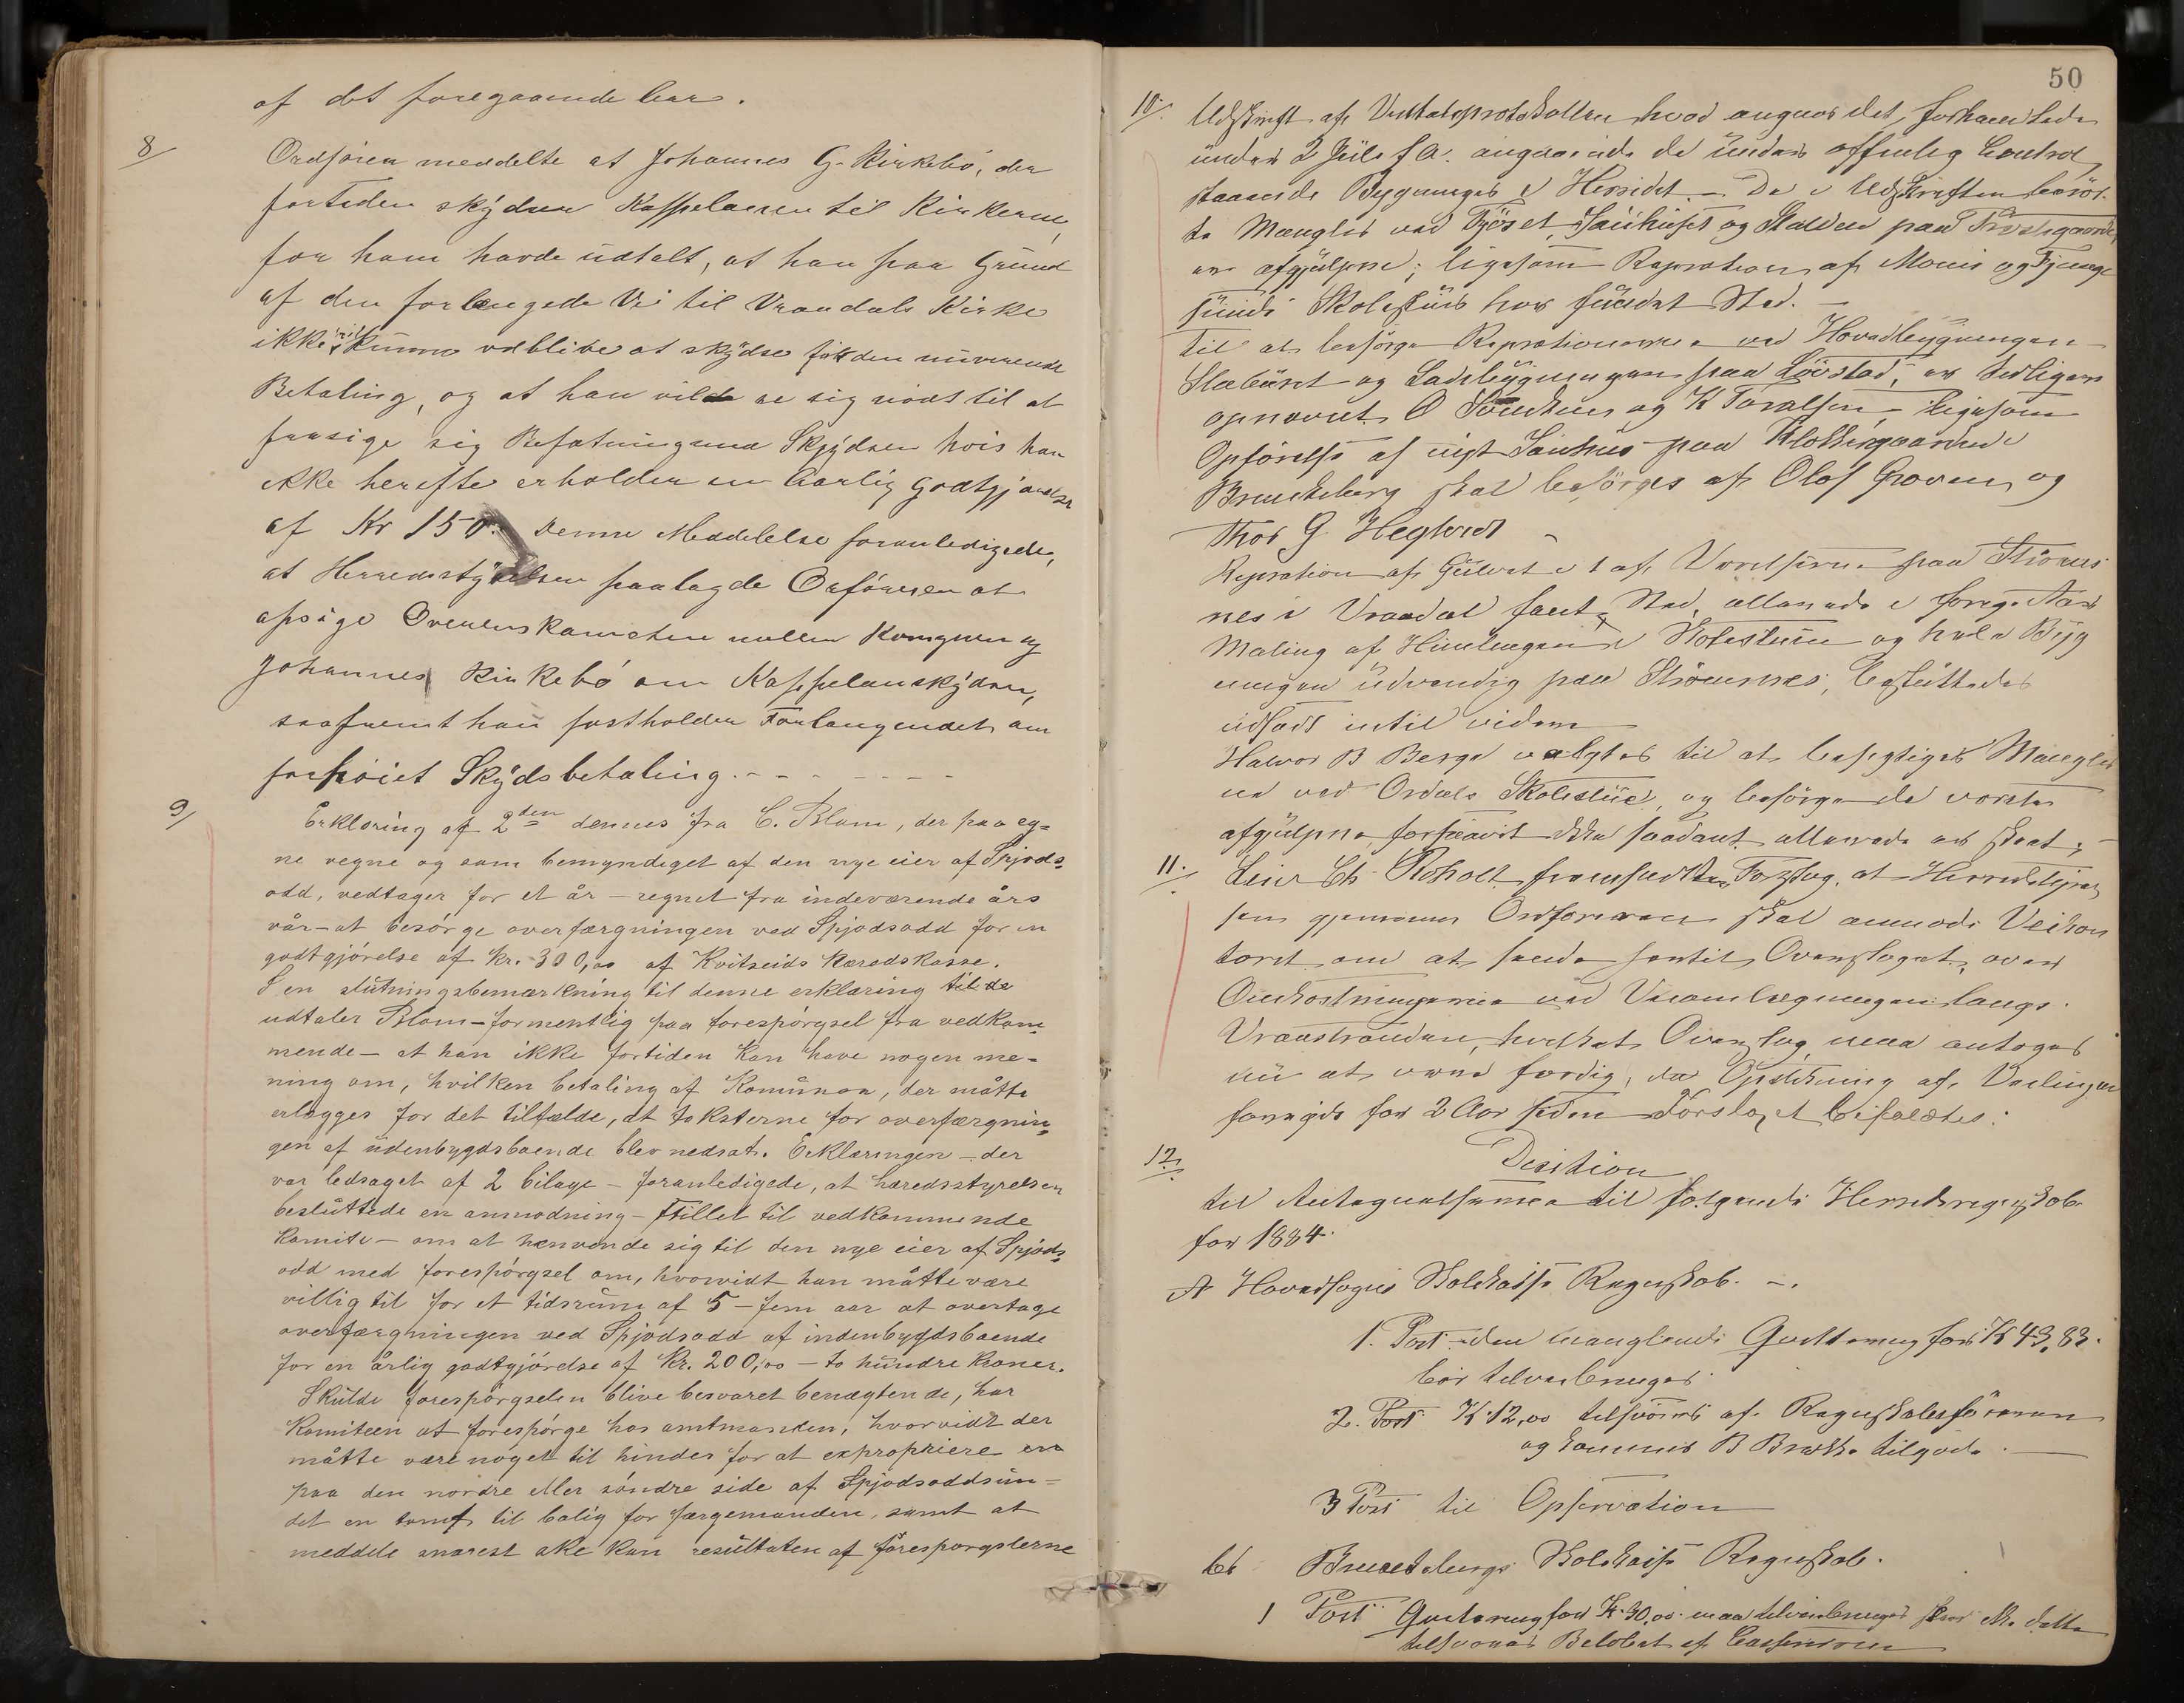 af det foregaaende Aar.
8/ Ordføren meddelte at Johannes G. Kirkebø, der
fortiden skydser Kappelanen til Kirkerne,
for ham havde udtalt, at han paa Grund
af den forlængede Vei til Vraadals Kirke
ikke vil kunne vedblive at skydse for den nuværende
Betaling, og at han vilde se sig nødt til at
frasige sig Befatning med Skydsen hvis han
ikke herefter erholder en Aarlig Godtgjørelse
af Kr 150. Denne Meddelelse foranledigede,
at Herredsstyrelsen paalagde Orføreren at
opsige Overenskomsten mellem Komunen og
Johannes Kirkebø om Kappelanskydsen,
saafremt han fastholder Forlangendet om
forhøiet Skydsbetaling. - - - - - - -
9/ Erklæring af 2den dennes fra C. Blom, der paa eg=
ne vegne og som bemyndiget af den nye eier af Spjods=
odd, vedtager for et år - regnet fra indeværende års
vår - at besørge overfærgningen ved Spjodsodd for en
godtgjørelse af kr. 300,00 af Kvitseids Herredskasse.
I en slutningsbemærkning til denne erklæring til de
udtaler Blom - formentlig paa forespørgsel fra vedkom=
mende - at han ikke fortiden kan have nogen me=
ning om, hvilken betaling af Komunen, der måtte
erlægges for det tilfælde, at taksterne for overfærgnin=
gen af udenbygdsboende blev nedsat. Erklæringen - der
var ledsaget af 2 bilage - foranledigede, at heredsstyrelsen
besluttede en anmodning - stillet til vedkommende
komite - om at henvende sig til den nye eier af Spjods=
odd med forespørgsel om, hvorvidt han måtte være
villig til for et tidsrum af 5 - fem aar at overtage
overfærgningen ved Spjodsodd af indenbygdsboende
for en årlig godtgjørelse af kr. 200,00 - to hundre kroner.
Skulde forespørgselen blive besvaret benægtende, har
Komiteen at forespørge hos amtmanden, hvorvidt der
måtte være noget til hinder for at expropriere en
paa den nordre eller søndre side af Spjodsoddsun=
det en tomt til bolig for færgemanden, samt at
meddele snarest ske kan resultaten af forespørgslerne
50
10/. Udskrift af Vedtaksprotokollen hvad angaar det forhandlede
under 2 Juli f.A. angaaende de under offenlig Control
staaende Bygninger i Herridet. - De i Udskriften berør-
te Mangler ved Fjøset, Sauhuset og Stalden paa Prestegaarden
er afhjulpne; ligesom Repration af Moens og
sunds Skolestuer har fundet Sted. -
Til at besørge Reprationerne ved Hovedbygningen
Stabburet og Ladebygningen paa Løvstad, er tidligere
opnævnt O Sundkus og K Toralsen, ligesom
Opførelse af nyt Sauhus paa Klokkergaarden i
Brunkeberg skal besørges af Olof Groven og
Thor G Hegtveit -
Repration af Gulvet i 1 af Værelserne paa Strøms
nes i Vraadal fant Sted allerede i forrige Aar
Maling af Himlingen i Skolestuen og hele Byg
ningen udvendig paa Strømnes, besluttedes
udsadt intil videre
Halvor B Berge valgtes til at besigtiges Mangler
ne ved Ordals Skolestue, og besørge de værste
afhjulpne, forsaavit ikke saadant allerede er skeet;
11./. Leier Ch Roholt fremsatte Forslag, at Herredstyrel
sen gjennem Ordføreren skal anmode Veikon
toret om at sende hertil Overslaget over
Omkostningerne ved Veiomlægningen langs
Vraastranden, hvilket Overslag maa antages
nu at være færdig, da Opstikning af Veilinjen
foregik for 2 Aar siden. Forslaget bifaldtes.
12/. Desition
til Antegnelserne til følgende Herredsregnskab
for 1884.
A Hovedsogns Skolekasse Regnskab. -.
1. Post den manglende Quittering for K 43,83.
bør tilveibringes.
2. Post K. 12,00 tilsvares af Regnskabsføreren
og kommer B Brekke tilgode. -
3 Post til Opservation
bb Brunkebergs Skolekasse Regnskab.
1 Post Quitering for K. 30,00 maa tilveibringes skeer ikke dette
tilsvares Beløbet af Casserern